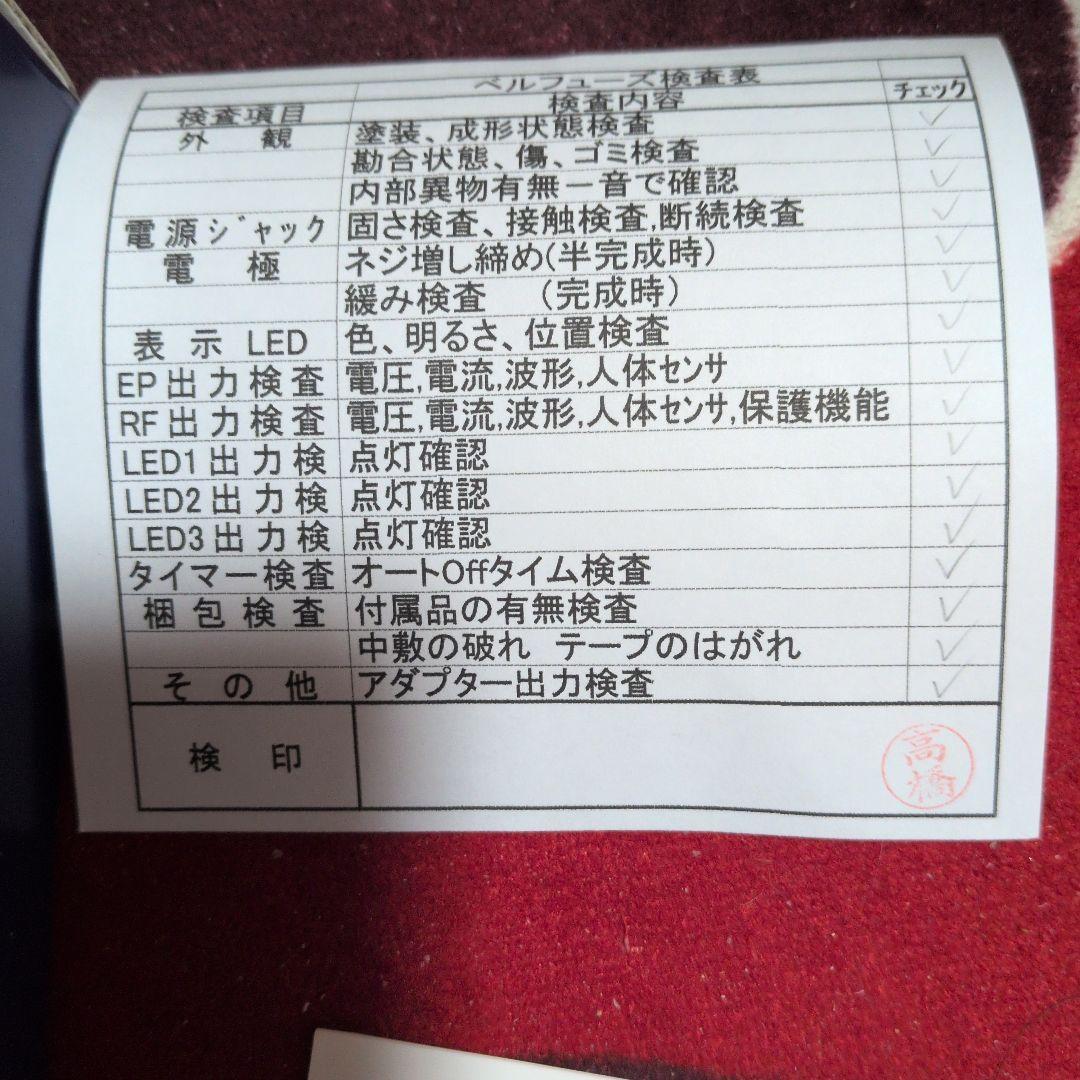 ベルフューズ検査表
検査項目 検査内容 チェック
外観 塗装、成形状態検査 ✓
勘合状態、傷、ゴミ検査 ✓
内部異物有無ー音で確認 ✓
電源ジャック 固さ検査、接触検査,断続検査 ✓
電極 ネジ増し締め(半完成時) ✓
緩み検査 (完成時) ✓
表示LED 色、明るさ、位置検査 ✓
EP出力検査 電圧,電流,波形,人体センサ ✓
RF出力検査 電圧,電流,波形,人体センサ,保護機能 ✓
LED1出力検 点灯確認 ✓
LED2出力検 点灯確認 ✓
LED3出力検 点灯確認 ✓
タイマー検査 オートOffタイム検査 ✓
梱包検査 付属品の有無検査 ✓
中敷の破れ テープのはがれ ✓
その他 アダプター出力検査 ✓
検印 高橋